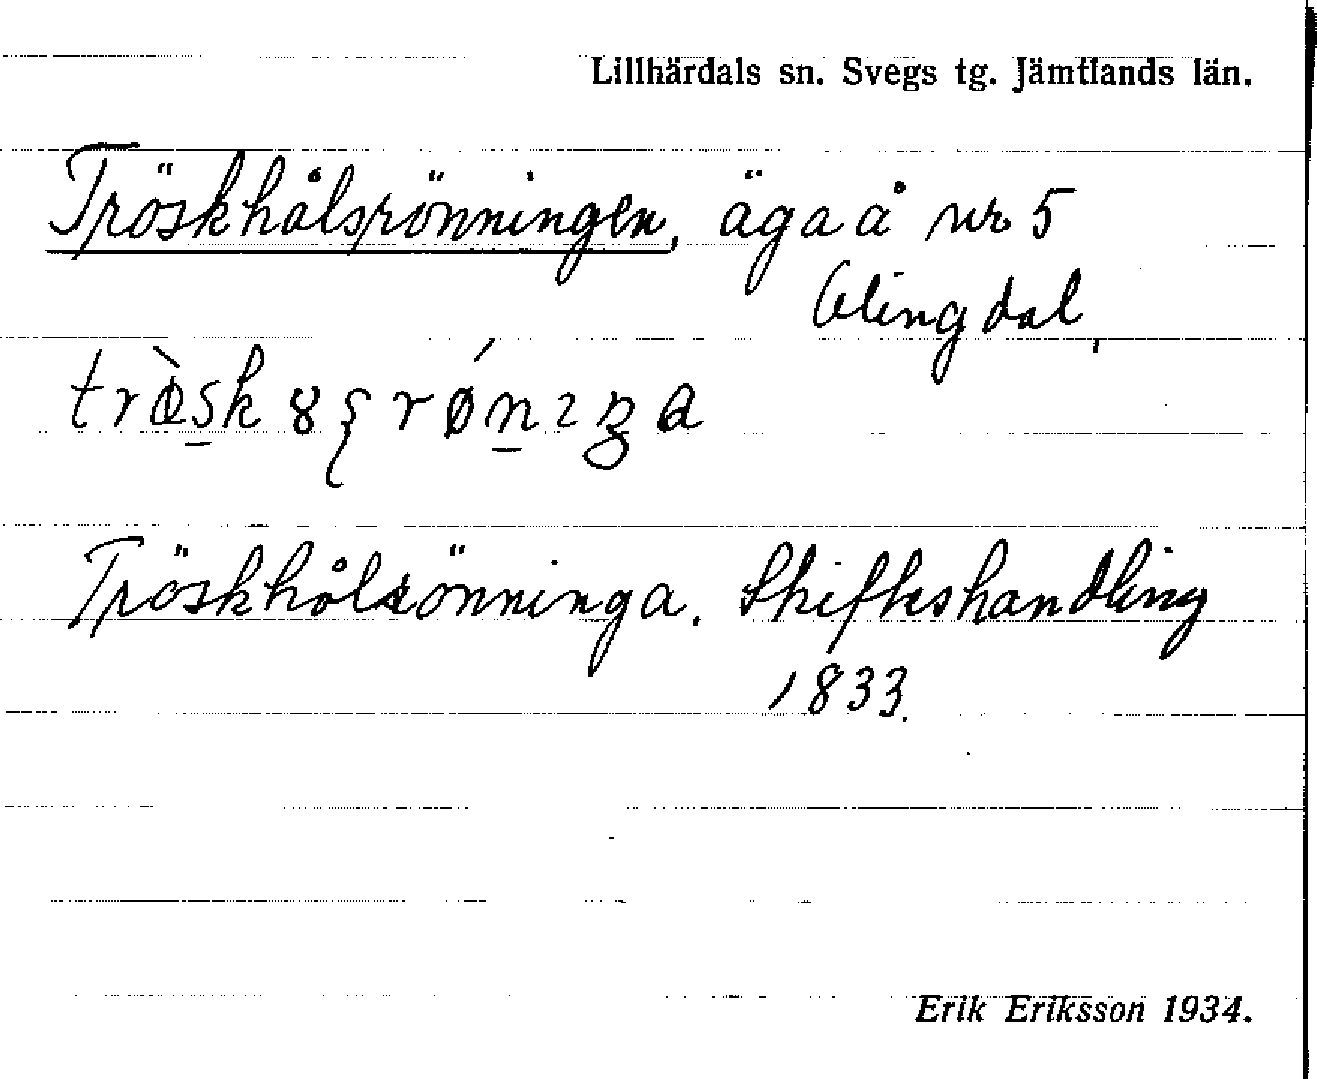 Lillhärdals sn. Svegs tg. Jämtlands län.
Tröskhålsrönningen, äga å nr 5
Olingdal,
Tröskhålsönninga. Skifteshandling
1833.
Erik Eriksson 1934.